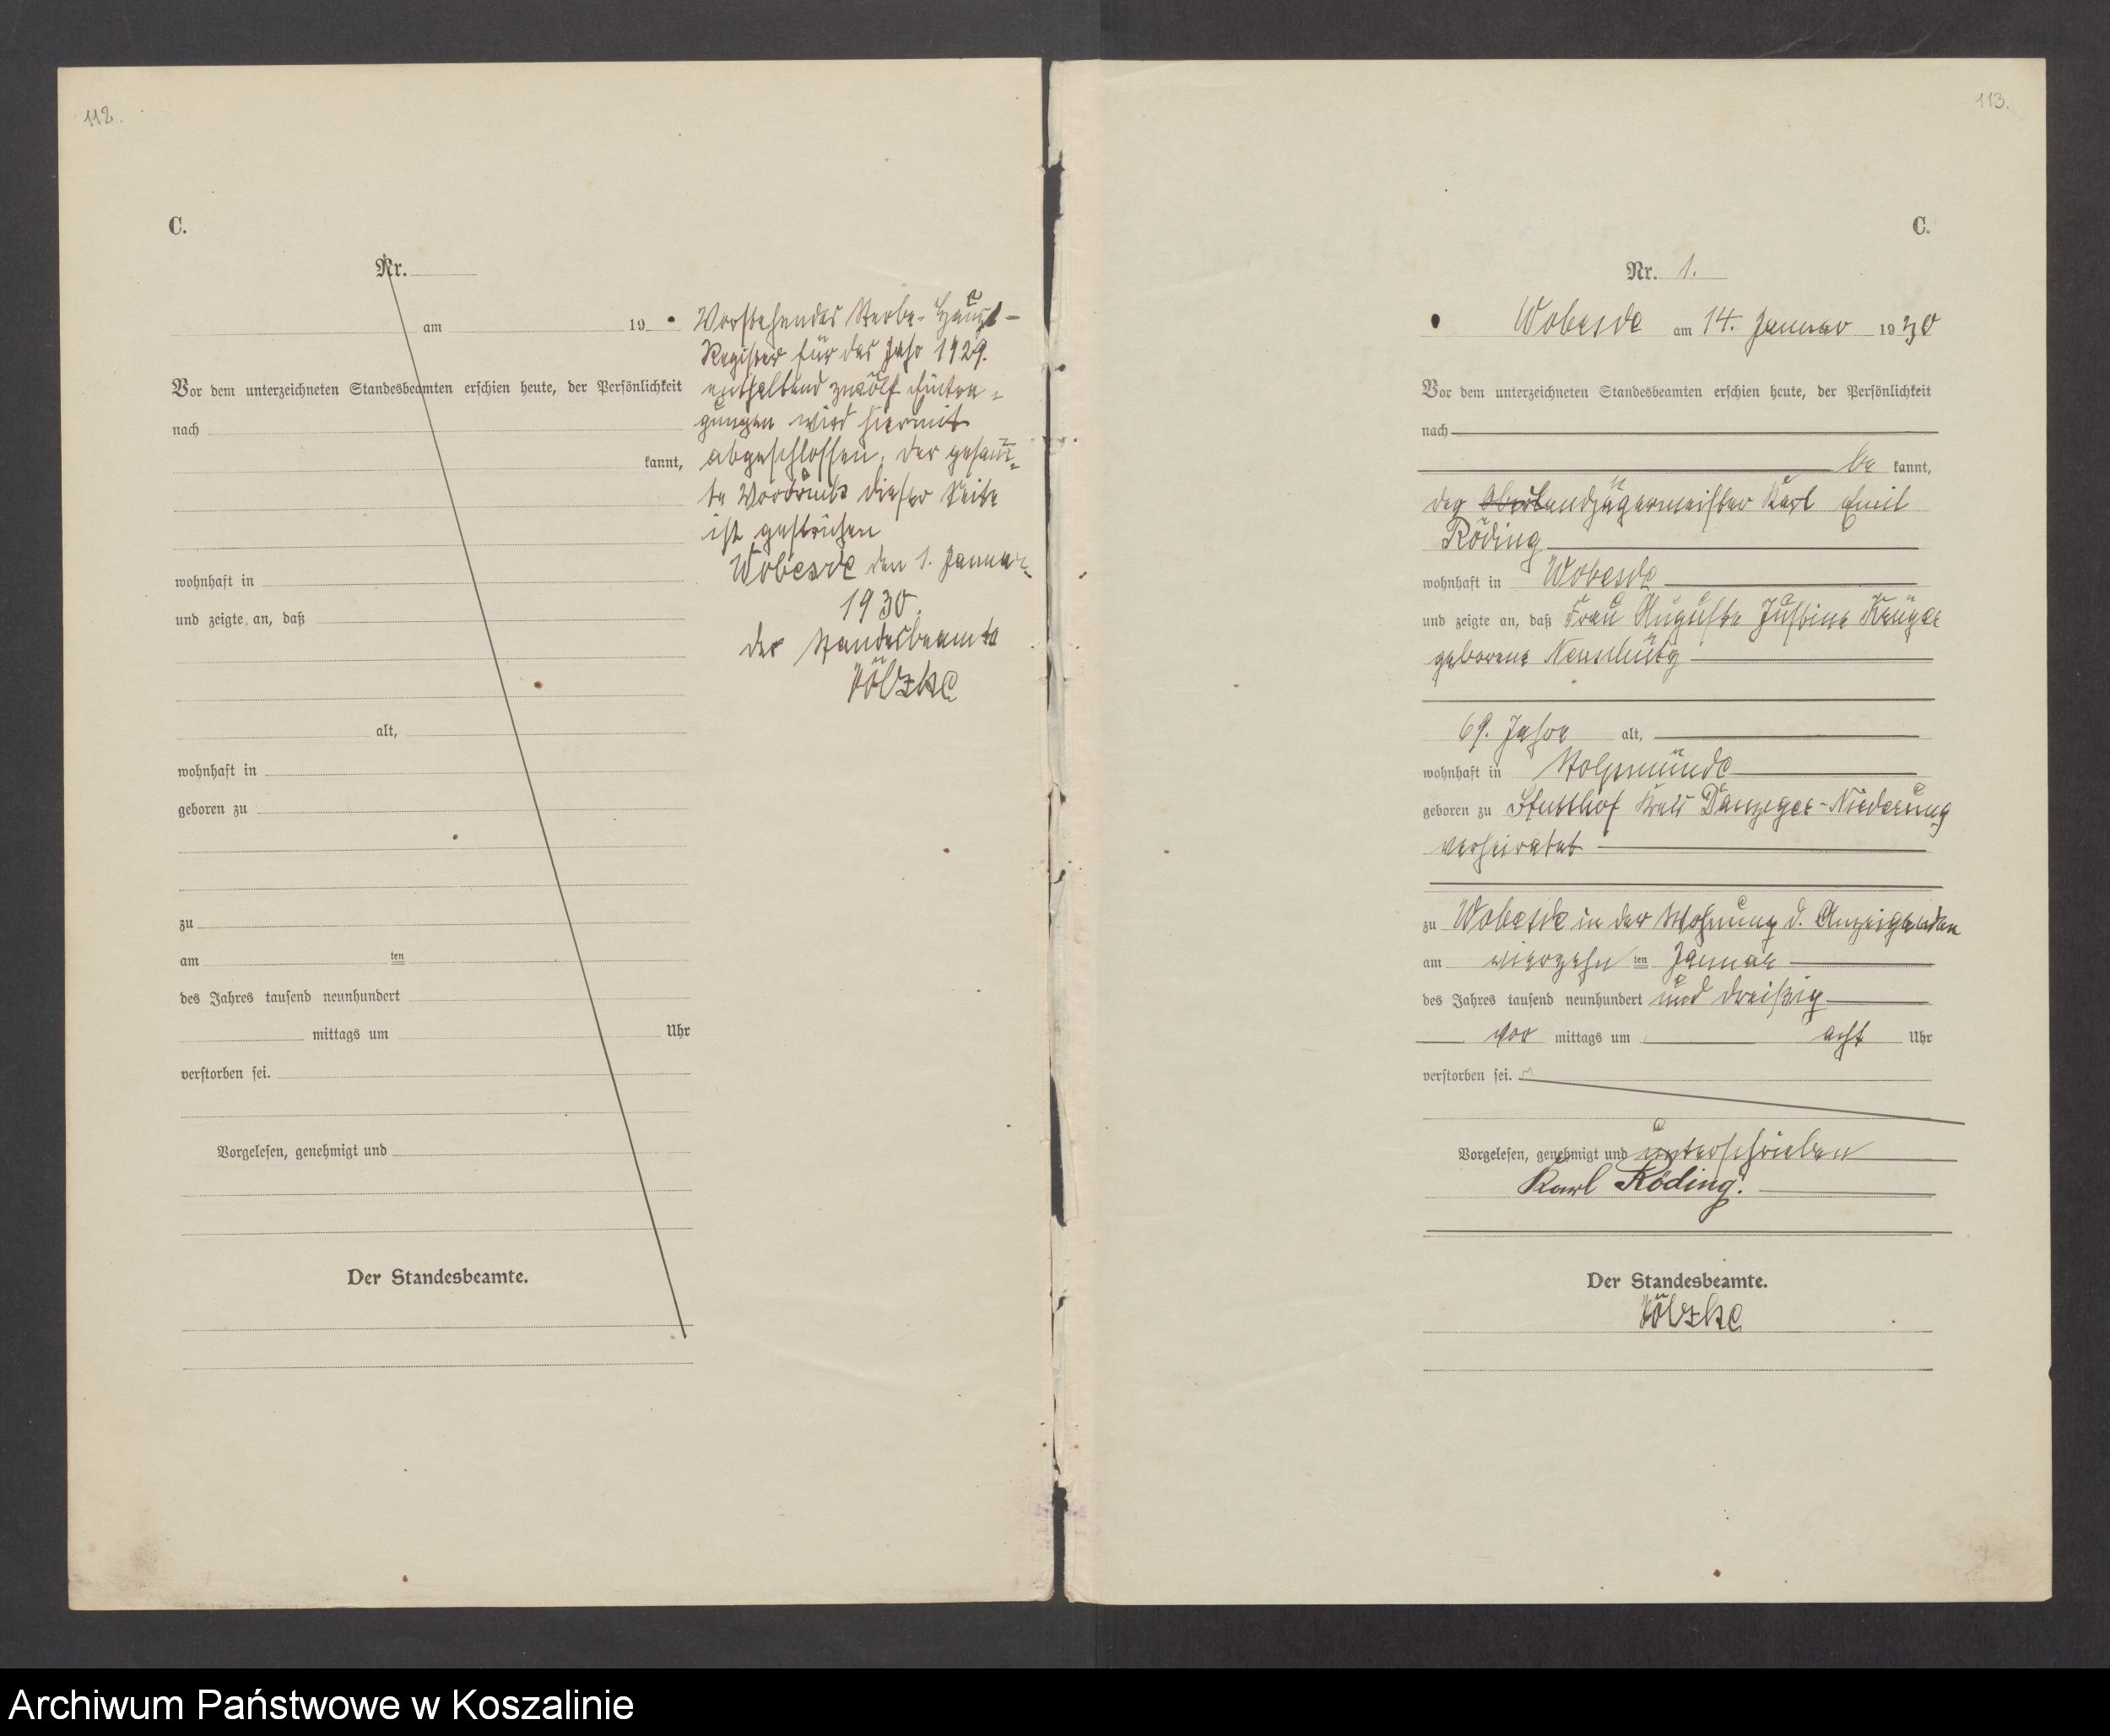 112.
C.
Nr.
am 19
Vor dem unterzeichneten Standesbeamten erschien heute, der Persönlichkeit
nach
kannt,
wohnhaft in
und zeigte an, daß
alt,
wohnhaft in
geboren zu
zu
am ten
des Jahres tausend neunhundert
mittags um Uhr
verstorben sei.
Vorgelesen, genehmigt und
Der Standesbeamte.
Vorstehendes Sterbe-Haupt-
Register für das Jahr 1929.
enthaltend zwölf Eintra-
gungen wird hiermit
abgeschlossen. Der gesam̅-
te Vordruck dieser Seite
ist gestrichen
Wobesde den 1. Januar
1930.
der Standesbeamte
Völzke
113.
C.
Nr. 1.
Wobesde am 14. Januar 1930
Vor dem unterzeichneten Standesbeamten erschien heute, der Persönlichkeit
nach
be kannt,
der Oberlandjägermeister Karl Emil
Röding
wohnhaft in Wobesde
und zeigte an, daß Frau Auguste Justine
geborene
69. Jahre alt,
wohnhaft in Stolpmünde
geboren zu Stutthof Kreis Danziger-Niederung
verheiratet
zu Wobesde in der Wohnung d. Anzeigenden
am vierzehn ten Januar
des Jahres tausend neunhundert und dreißig
vor mittags um acht Uhr
verstorben sei.
Vorgelesen, genehmigt und unterschrieben
Karl Röding.
Der Standesbeamte.
Völzke
Archiwum Państwowe w Koszalinie